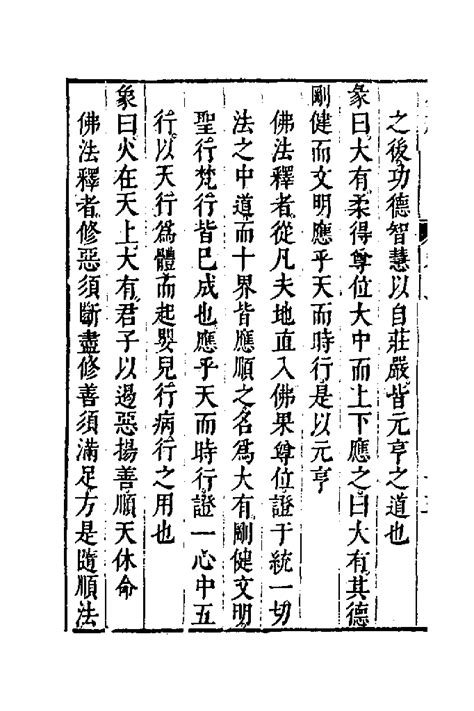 之後功德智慧以自莊嚴皆元亨之道也
彖曰大有柔得尊位大中而上下應之曰大有其德
剛健而文明應乎天而時行是以元亨
佛法釋者從凡夫地直入佛果尊位證于統一切
法之中道而十界皆應順之名爲大有剛健文明
聖行梵行皆已成也應乎天而時行證一心中五
行以天行爲體而起嬰兒行病行之用也
象曰火在天上大有君子以遏惡揚善順天休命
佛法釋者修惡須斷盡修善須滿足方是隨順法